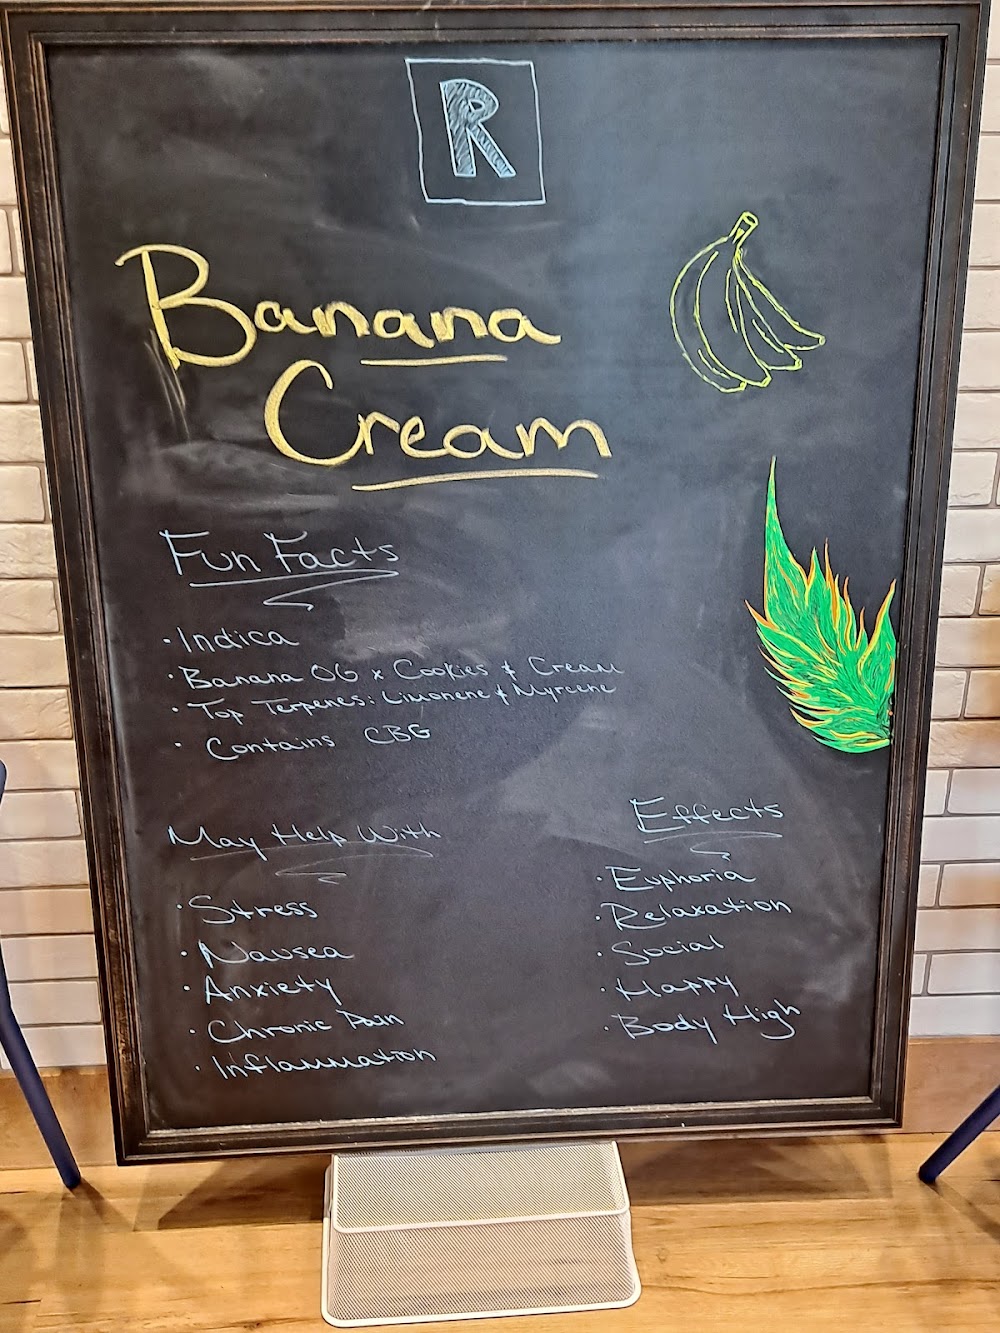 R
Banana
Cream
Fun Facts
· Indica
· Banana OG x Cookies & Cream
· Top Terpenes: Limonene & Myrcene
· Contains CBG
May Help With
· Stress
· Nausea
· Anxiety
· Chronic Pain
· Inflammation
Effects
· Euphoria
· Relaxation
· Social
· Happy
· Body High